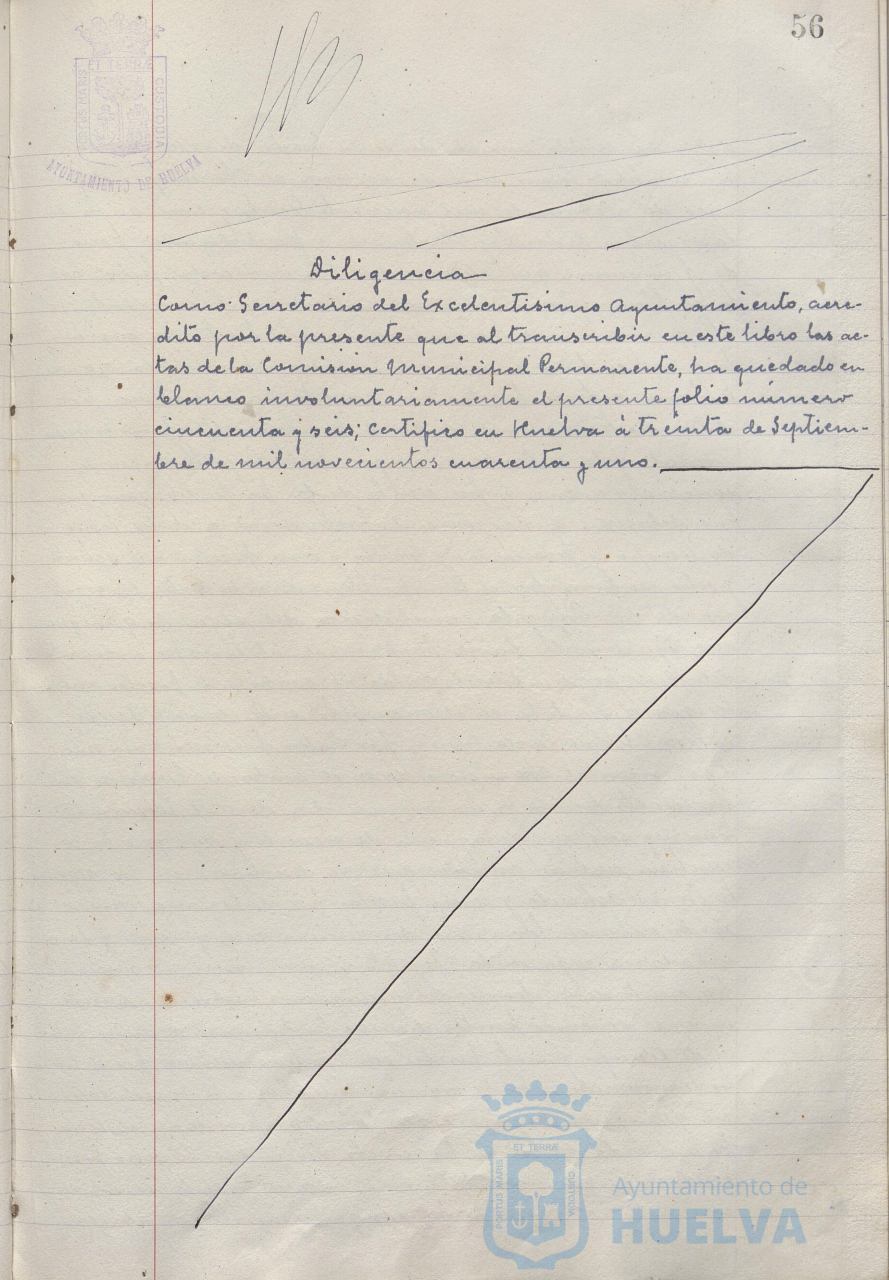 56
ET TERRÆ
CUSTODIA
AYUNTAMIENTO DE HUELVA
Diligencia
Como Secretario del Excelentisimo Ayuntamiento, acre-
dito por la presente que al transcribir en este libro las ac-
tas de la Comisión Municipal Permanente, ha quedado en
blanco involuntariamente el presente folio número
cincuenta y seis; certifico en Huelva á treinta de Septiem-
bre de mil novecientos cuarenta y uno.
ET TERRÆ
PORTUS MARIS
CUSTODIA
Ayuntamiento de
HUELVA